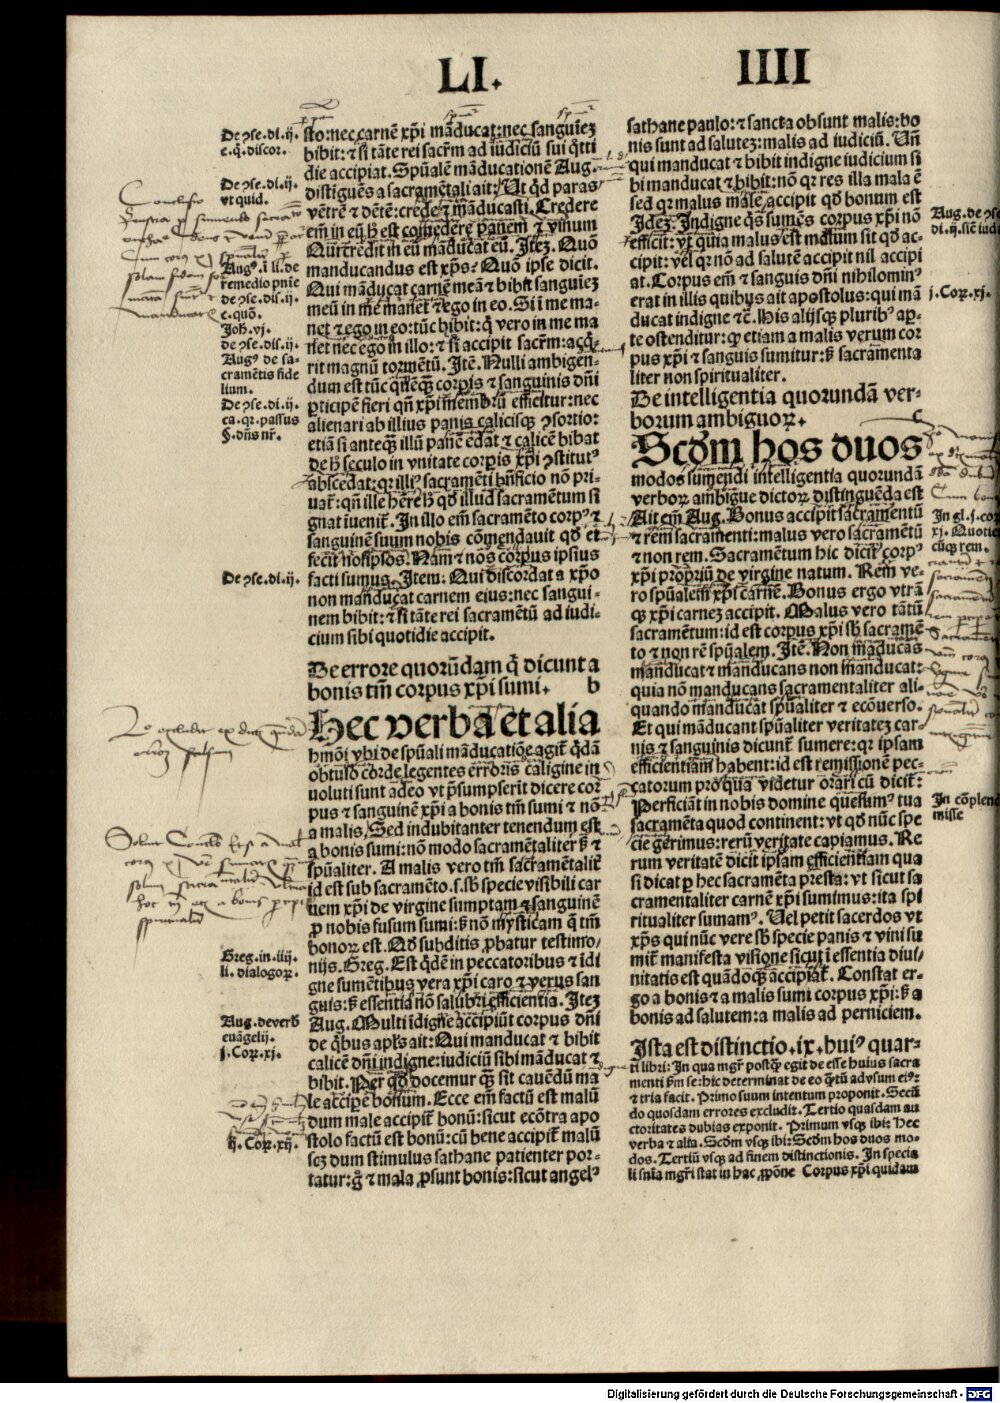 LI.
IIII
De ↄse.di.ij.
c.q̃.discor.
De ↄse.di.ij.
vt quid.
Augꝰ.i li.de
remedio pnīe
de ↄse.dis.ij.
c.quō.
Joh̄.vj.
de ↄse.dis.ij.
Augꝰ de sa-
cramētis fide
lium.
De ↄse.di.ij.
ca.qr.passus
§.dn̄s nr̄.
De ↄse.di.ij.
Greg.in.iiij.
li.dialogoꝝ.
Aug.de verb̄
euāgelij.
j.Coꝝ.xj.
ij.Coꝝ.xij.
sto:nec carnē xp̄i māducat:nec sanguīeꝫ
bibit:⁊ si tāte rei sacr̄m ad iudiciū sui q̄tti
die accipiat. Spūalē māducationē Aug.
distiguēs a sacramētali ait: Ut qd̄ paras
vētrē ⁊ dētē: crede ⁊ māducasti. Credere
em̄ in eū ħ est comedere panem ⁊ vinum
Qui credit in eū māducat eū. Iteꝫ. Quō
manducandus est xp̄s? Quō ipse dicit.
Qui māducat carnē meā ⁊ bibit sanguīeꝫ
meū in me manet ⁊ ego in eo. Si i me ma-
net ⁊ ego in eo: tūc bibit: q̄ vero in me ma
net nec ego in illo: ⁊ si accipit sacr̄m: acq̄
rit magnū tormētū. Itē. Nulli ambigen-
dum est tūc quēqꝫ corpis ⁊ sanguinis dn̄i
ꝑticipē fieri qn̄ xp̄i membrū efficitur: nec
alienari ab illius panis calicisqꝫ ↄsortio:
etiā si anteqꝫ illū panē edat ⁊ calicē bibat
de ħ seculo in vnitate corpis xp̄i ↄstitutꝰ
abscedat: qr illiꝰ sacramēti bn̄ficio nō pri-
uat̄: qn̄ ille h̄ere ħ qd̄ illud sacramētum si
gnat īuenit̄. In illo em̄ sacramēto corpꝰ ⁊
sanguinē suum nobis cōmendauit qd̄ et
fecit nosipsos. Nam ⁊ nos corpus ipsius
facti sumus. Item: Qui discordat a xp̄o
non manducat carnem eius: nec sangui-
nem bibit: ⁊ si tāte rei sacramētū ad iudi-
cium sibi quotidie accipit.
De errore quorūdam q̄ dicunt a
bonis tm̄ corpus xp̄i sumi. b
Hec verba et alia
hm̄oi vbi de spūali māducatiōe agit̄ q̄dā
obtuso corde legentes erroris caligine in
uoluti sunt adeo vt p̄sumpserīt dicere cor
pus ⁊ sanguinē xp̄i a bonis tm̄ sumi ⁊ nō
a malis. Sed indubitanter tenendum est
a bonis sumi: nō modo sacramētaliter sꝫ ⁊
spūaliter. A malis vero tm̄ sacramētalit̄
id est sub sacramēto.s.sb̄ specie visibili car
nem xp̄i de virgine sumptam ⁊ sanguinē
ꝓ nobis fusum sumi: sꝫ nō mysticam q̄ tm̄
bonoꝝ est. Qd̄ subditis ꝓbatur testimo/
nijs. Greg. Est q̄dē in peccatoribus ⁊ īdi
gne sumētibus vera xp̄i caro ⁊ verus san
guis: sꝫ essentia nō salubri efficientia. Iteꝫ
Aug. Multi īdigne accipiūt corpus dn̄i
de q̄bus apl̄s ait: Qui manducat ⁊ bibit
calicē dn̄i indigne: iudiciū sibi māducat ⁊
bibit. Per qd̄ docemur qꝫ sit cauēdū ma
le accipe bonum. Ecce em̄ factū est malū
dum male accipit̄ bonū: sicut ecōtra apo
stolo factū est bonū: cū bene accipit̄ malū
scꝫ dum stimulus sathane patienter por-
tatur: g̊ ⁊ mala ꝓsunt bonis: sicut angelꝰ
sathane paulo: ⁊ sancta obsunt malis: bo
nis sunt ad salutez: malis ad iudiciū. Un̄
qui manducat ⁊ bibit indigne iudicium si
bi manducat ⁊ bibit: nō qr res illa mala ē
sed qr malus male accipit qd̄ bonum est
Ideꝫ. Indigne q̄s sumēs corpus xp̄i nō
efficit: vt quia malus est malum sit qd̄ ac-
cipit: vel qr nō ad salutē accipit nil accipi
at. Corpus em̄ ⁊ sanguis dn̄i nihilominꝰ
erat in illis quibus ait apostolus: qui mā
ducat indigne ⁊c̄. His alijsqꝫ pluribꝰ aꝑ-
te ostenditur: qꝫ etiam a malis verum cor
pus xp̄i ⁊ sanguis sumitur: sꝫ sacramenta
liter non spiritualiter.
De intelligentia quorundā ver-
borum ambiguoꝝ. c
Scd̄m hos duos
modos sumendi intelligentia quorundā
verboꝝ ambigue dictoꝝ distinguēda est
Ait em̄ Aug. Bonus accipit sacramentū
⁊ rem sacramenti: malus vero sacramētū
⁊ non rem. Sacramētum hic dicit̄ corpꝰ
xp̄i propriū de virgine natum. Rem ve-
ro spūalem xp̄s carnē. Bonus ergo vtrā
qꝫ xp̄i carnez accipit. Malus vero tātū
sacramētum: id est corpus xp̄i sb̄ sacramē
to ⁊ non rē spūalem. Itē. Non māducās
manducat ⁊ manducans non manducat:
quia nō manducans sacramentaliter ali-
quando manducat spūaliter ⁊ ecōuerso.
Et qui māducant spūaliter veritatez car-
nis ⁊ sanguinis dicunt̄ sumere: qr ipsam
efficientiam habent: id est remissionē pec-
catorum pro qua videtur orari cū dicit̄:
Perficiāt in nobis domine quesumꝰ tua
sacramēta quod continent: vt qd̄ nūc spe
cie gerimus: rerū veritate capiamus. Re
rum veritatē dicit ipsam efficientiam qua
si dicat ꝑ hec sacramēta presta: vt sicut sa
cramentaliter carnē xp̄i sumimus: ita spi
ritualiter sumamꝰ. Uel petit sacerdos vt
xp̄s qui nūc vere sb̄ specie panis ⁊ vini su
mit̄ manifesta visione sicut ī essentia diui/
nitatis est quādoqꝫ accipiat̄. Constat er-
go a bonis ⁊ a malis sumi corpus xp̄i: sꝫ a
bonis ad salutem: a malis ad perniciem.
Ista est distinctio.ix.huiꝰ quar-
ti libri: In qua mgr̄ postqꝫ egit de esse huius sacra
menti sm̄ se: hic determinat de eo q̄tū ad vsum eiꝰ:
⁊ tria facit. Primo suum intentum proponit. Secū
do quosdam errores excludit. Tertio quasdam au
ctoritates dubias exponit. Primum vsqꝫ ibi: Hec
verba ⁊ alia. Scd̄m vsqꝫ ibi: Scd̄m hos duos mo-
dos. Tertiū vsqꝫ ad finem distinctionis. In specia
li snīa mgr̄i stat in hac ꝓpōne Corpus xp̄i quidam
Aug.de ↄse
j.Coꝝ.xj.
In gl.j.co
xj.Quotie
cūqꝫ rem.
In cōplend
misse
Digitalisierung gefördert durch die Deutsche Forschungsgemeinschaft - DFG